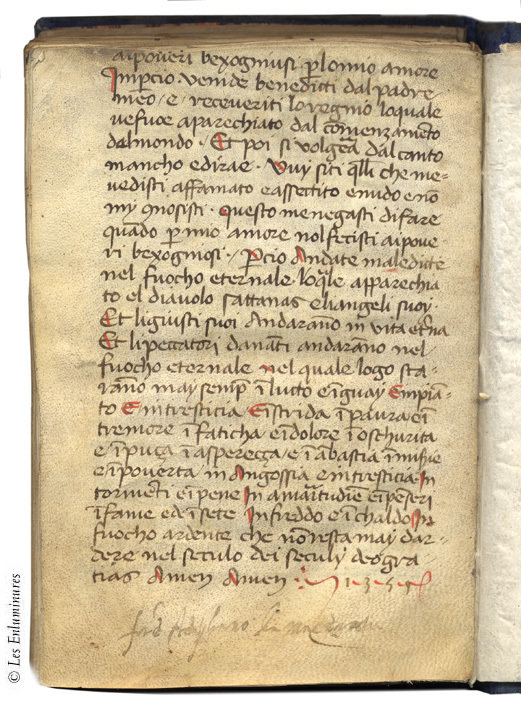 aipoueri bexogniusi p lomio amore
Impercio venide beneditti dal padre
meo / e receueriti lo regnio loquale
ve fuoe aparechiato dal comenzamēto
dalmondo · Et poi si volgera dal canto
mancho edirae · Vuy siti qlli che me
vedisti affamato eassetito enudo e nō
my qnosisti · questo menegasti difare
quādo p mio amore nol fecisti aipoue
ri bexogniosi ·/ percio Andate maledicte
nel fuocho eternale · loqle apparechia
to el diauolo sattanas eliangeli suoy ·
Et ligiusti suoi Andarano in vita etna
Et lipeccatori danati andarano nel
fuocho eternale nel quale logo sta
rāno may semp ī lucto e ī guay Empian
to E in tresticia E ī strida ī paura e ī
tremore ī faticha e ī dolore ī oschurita
e ī puça ī asperecça / e ī abastia
e ī pouerta / in Angossia e in tresticia In
tormenti e ī pene In amaritudine e ī peseri
ī fame ede ī sete Infreddo e ī chaldo In
fuocho ardente che nō resta may dar
dere nel seculo dei seculy deo gra
tias Amen Amen